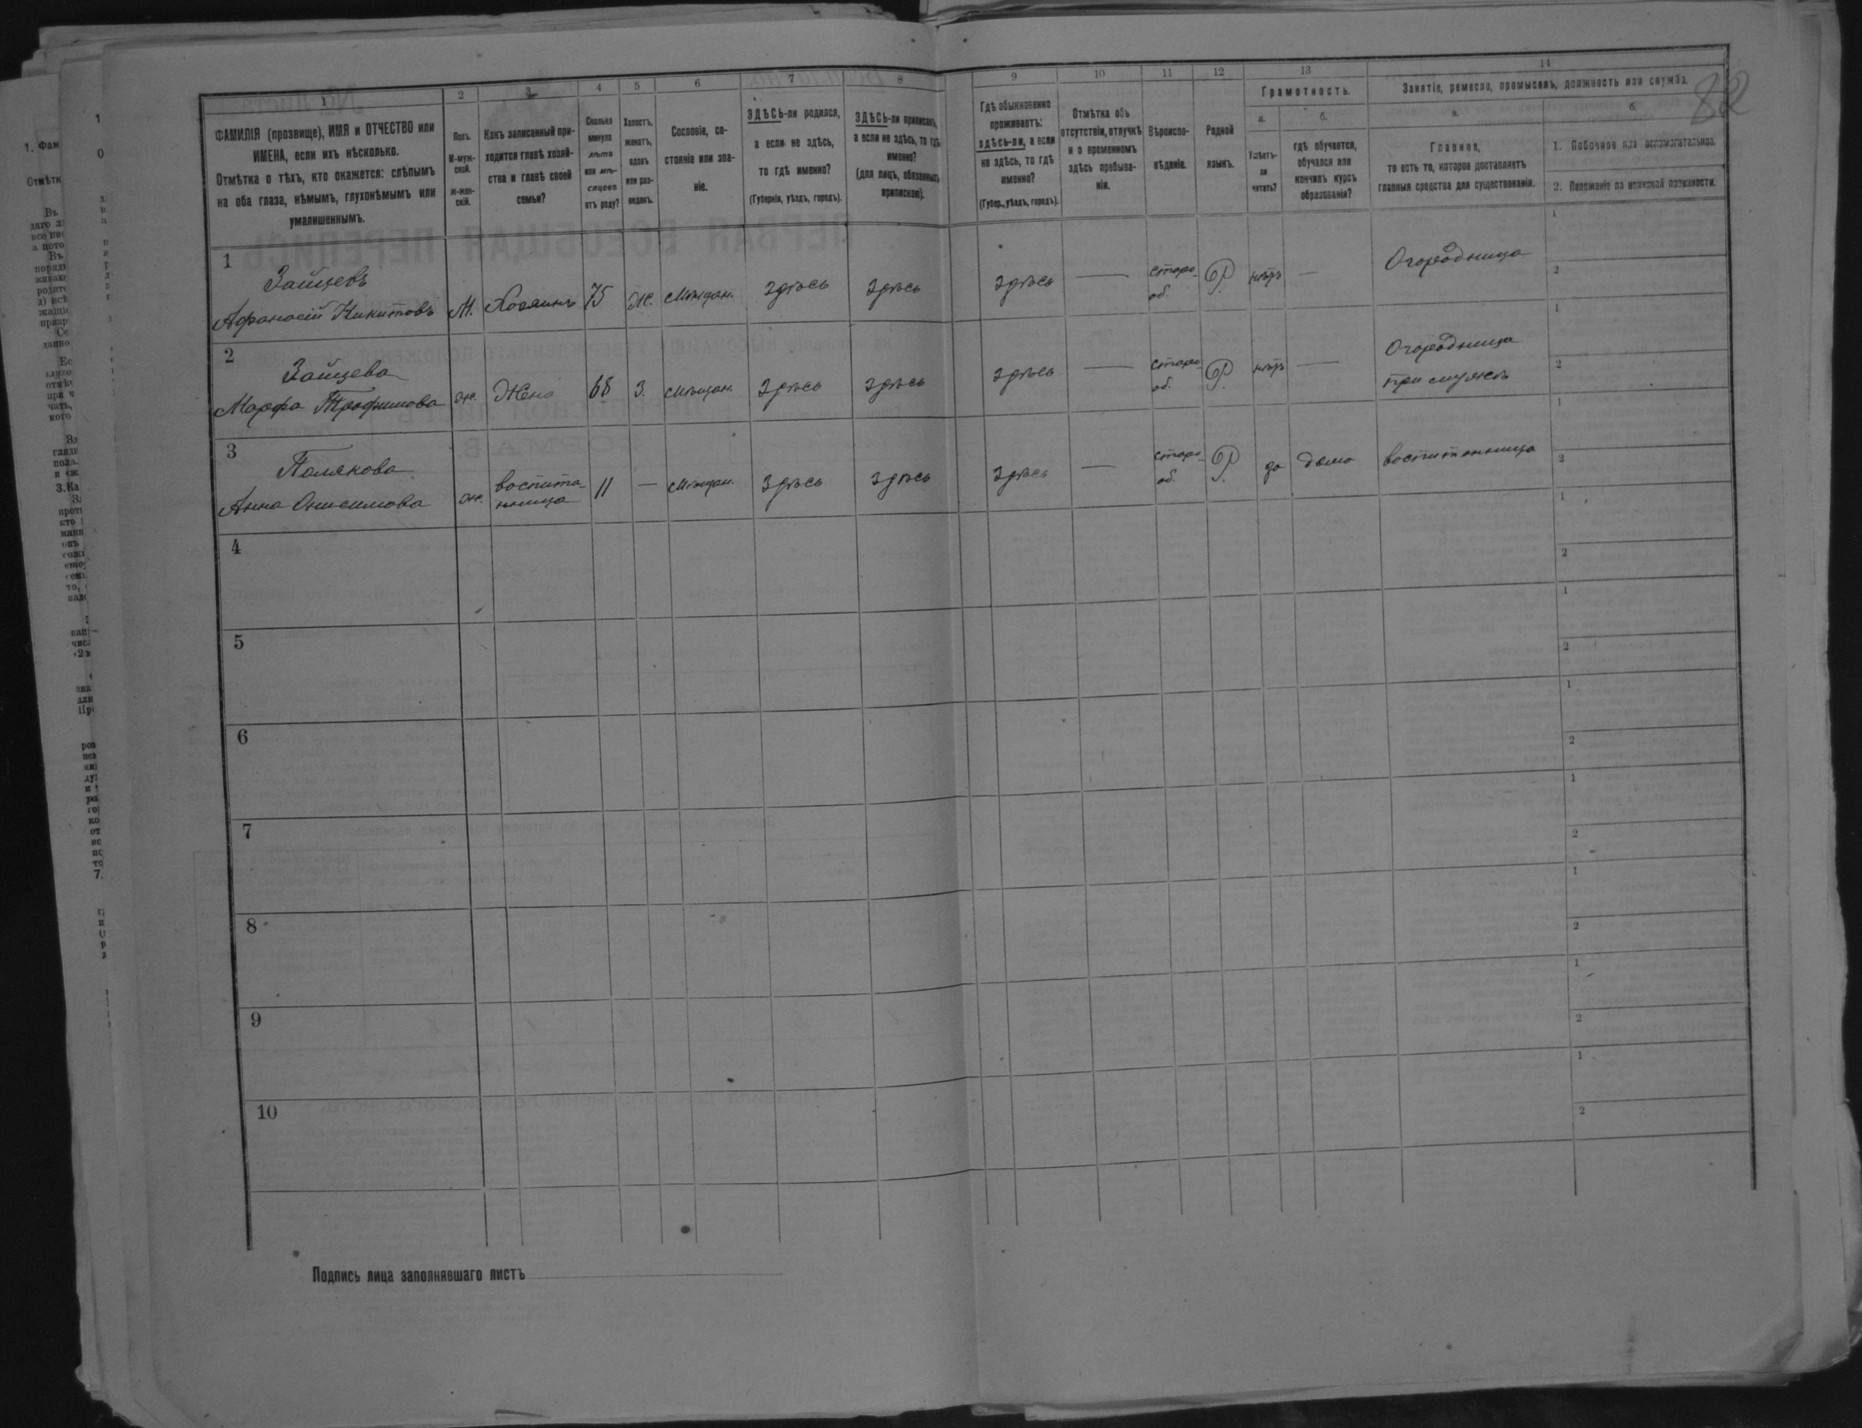 82
1 2 3 4 5 6 7 8 9 10 11 12 13 14
ФАМИЛІЯ (прозвище), ИМЯ и ОТЧЕСТВО или
ИМЕНА, если ихъ нѣсколько.
Отмѣтка о тѣхъ, кто окажется: слѣпымъ
на оба глаза, нѣмымъ, глухонѣмымъ или
умалишеннымъ.
Полъ.
М-муж-
ской.
ж-жен-
скій.
Какъ записанный при-
ходится главѣ хозяй-
ства и главѣ своей
семьи?
Сколько
минуло
лѣтъ
или мѣ-
сяцевъ
отъ роду?
Холостъ,
женатъ,
вдовъ
или раз-
веденъ.
Сословіе, со-
стояніе или зва-
ніе.
ЗДѢСЬ-ли родился,
а если не здѣсь,
то гдѣ именно?
(Губернія, уѣздъ, городъ).
ЗДѢСЬ-ли приписанъ,
а если не здѣсь, то гдѣ
именно?
(для лицъ, обязанныхъ
припискою).
Гдѣ обыкновенно
проживаетъ:
здѣсь-ли, а если
не здѣсь, то гдѣ
именно?
(Губер., уѣздъ, городъ).
Отмѣтка объ
отсутствіи, отлучкѣ
и о временномъ
здѣсь пребыва-
ніи.
Вѣроиспо-
вѣданіе.
Родной
языкъ.
Грамотность.
а.
Умѣетъ-
ли
читать?
б.
гдѣ обучается,
обучался или
кончилъ курсъ
образованія?
Занятіе, ремесло, промыселъ, должность или служба.
а.
Главное,
то есть то, которое доставляетъ
главныя средства для существованія.
б.
1. Побочное или вспомогательное.
2. Положеніе по воинской повинности.
1
Зайцевъ
Афанасій Никитовъ М. Хозяинъ 75 Ж. Мѣщан. здѣсь здѣсь здѣсь — старо-об. Р. нѣтъ — Огородница
1
2
2
Зайцева
Марфа Трофимова ж. Жена 68 З. Мѣщан. здѣсь здѣсь здѣсь — старо-об. Р. нѣтъ — Огородница
при мужѣ
1
2
3
Полякова
Анна Онисимова ж. воспита
нница 11 — Мѣщан. здѣсь здѣсь здѣсь — старо-об. Р. да дома воспитанница
1
2
4
1
2
5
1
2
6
1
2
7
1
2
8
1
2
9
1
2
10
1
2
Подпись лица заполнявшаго листъ